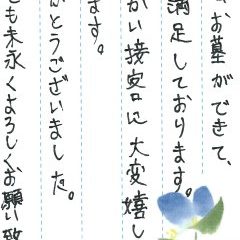 お墓ができて、
満足しております。
かい接客に大変嬉し
ます。
がとうございました。
も末永くよろしくお願い致